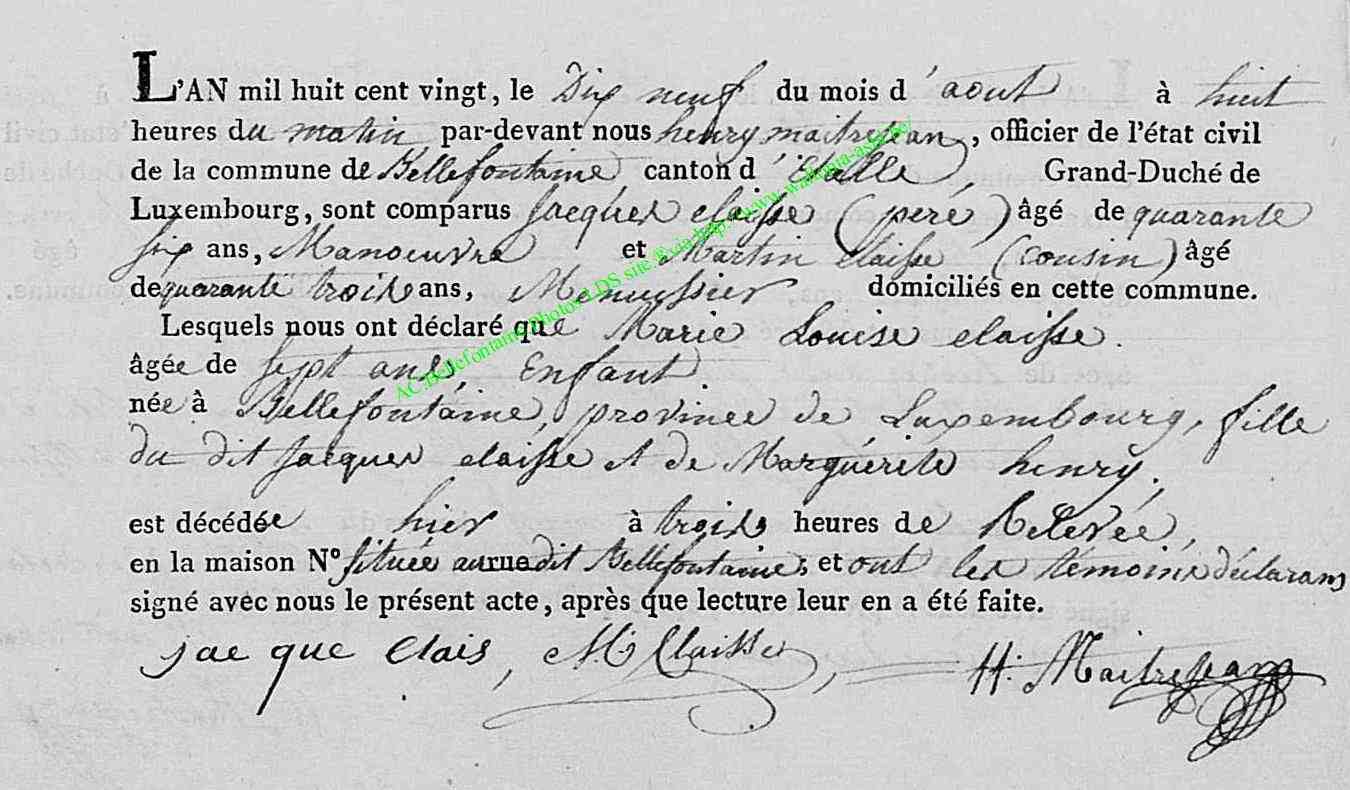 L'AN mil huit cent vingt, le Dix neuf du mois d'aout à huit
heures du matin, par-devant nous henry maitrejean, officier de l'état civil
de la commune de Bellefontaine, canton d'Etalle, Grand-Duché de
Luxembourg, sont comparus Jacques claisse (pere) âgé de quarante
six ans, Manoeuvre et Martin claisse (cousin) âgé
de quarante trois ans, Menuissier domiciliés en cette commune.
Lesquels nous ont déclaré que Marie Louise claisse.
âgée de sept ans, Enfant.
née à Bellefontaine, province de Luxembourg, fille
du dit Jacques claisse et de Marguérite henry.
est décédée hier à trois heures de Relevée,
en la maison N° située au rue dit Bellefontaine; et ont les témoins déclarans
signé avec nous le présent acte, après que lecture leur en a été faite.
jac que Clais, M Claisse, H: Maitrejean
AC Bellefontaine Photos LDS site